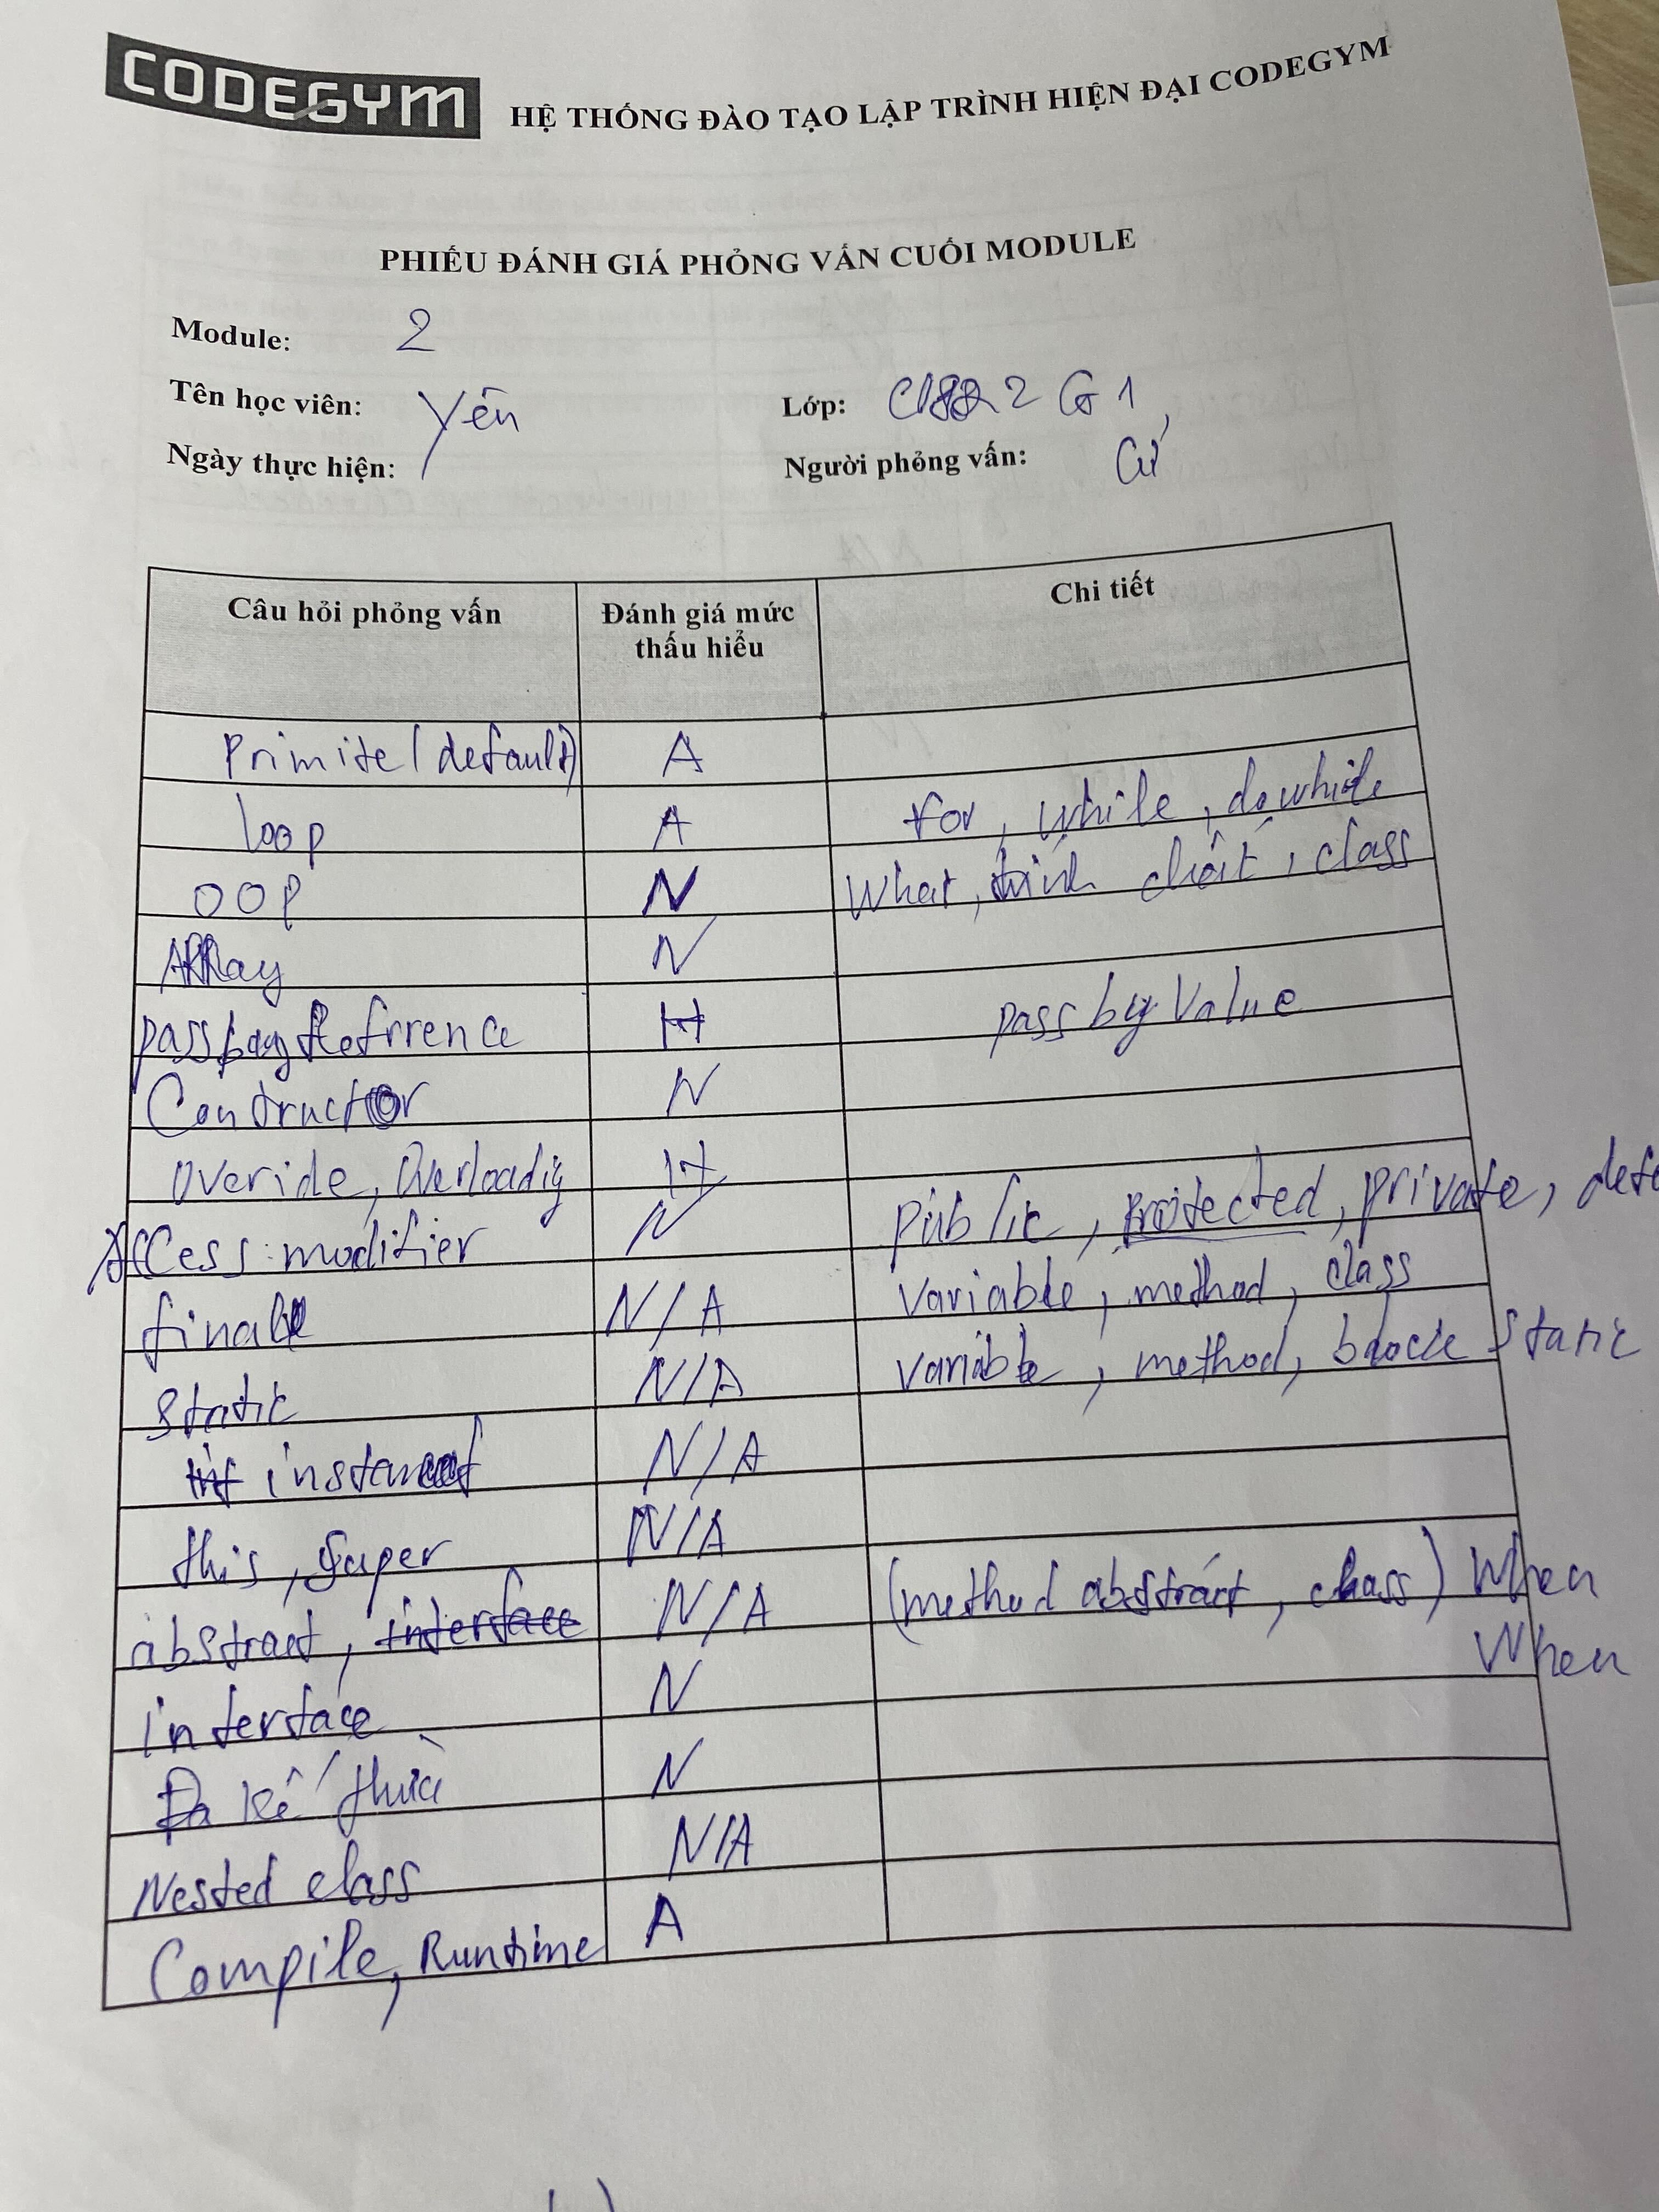 CODEGYM HỆ THỐNG ĐÀO TẠO LẬP TRÌNH HIỆN ĐẠI CODEGYM
PHIẾU ĐÁNH GIÁ PHỎNG VẤN CUỐI MODULE
Module: 2
Tên học viên: Yến Lớp: 2 G1
Ngày thực hiện: Người phỏng vấn: Cừ
Câu hỏi phỏng vấn Đánh giá mức thấu hiểu Chi tiết
Primite (default) A
loop A for, while, do while
OOP N What, tính chất, class
ARRay N
pass by Refrrence H pass by Value
Contructor N
Overide, Overloadig H
Access modifier N public, protected, private, defa
final N/A variable, method, class
static N/A variable, method, block static
instanceof N/A
this, super N/A
abstract, interface N/A (method abstract, class) When
interface N When
Đa kế thừa N
Nested class N/A
Compile, Runtime A